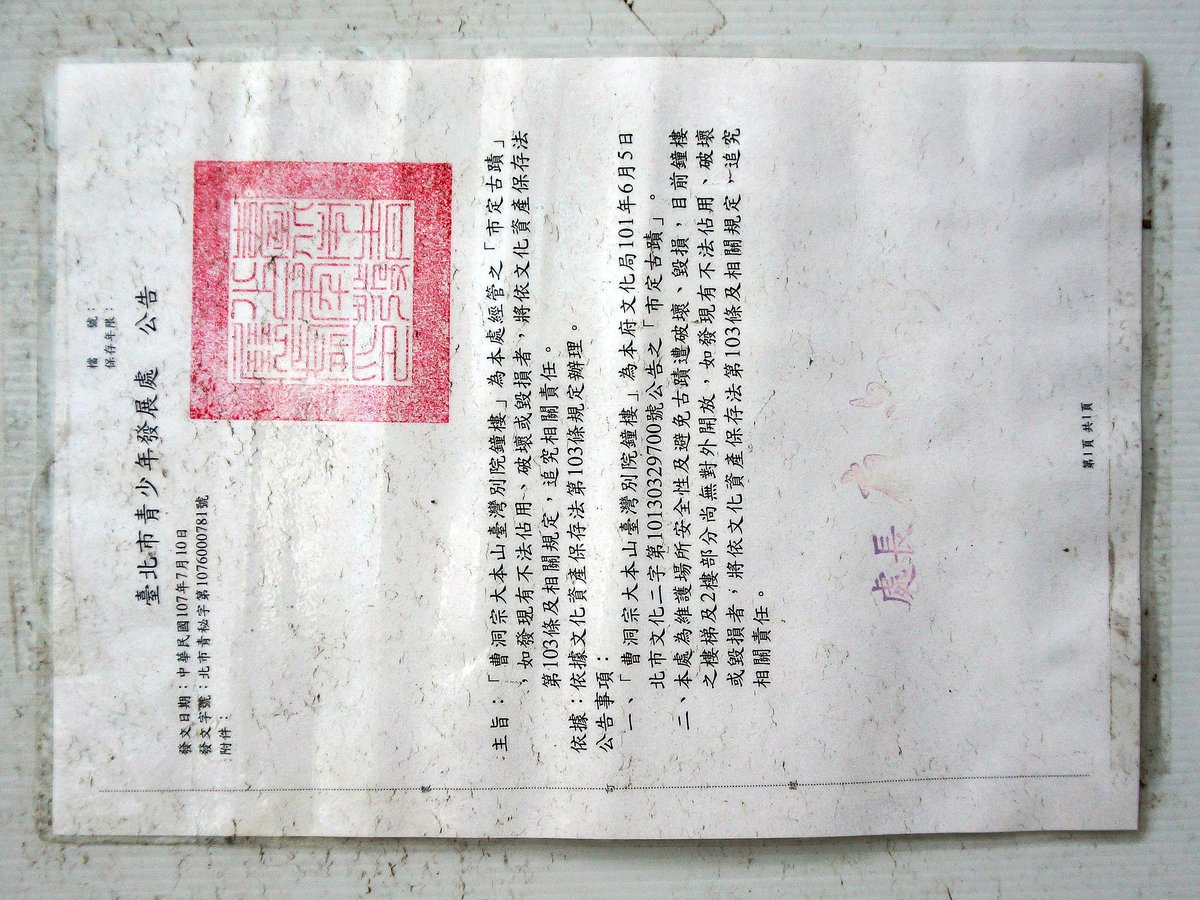 檔　　號：
保存年限：
臺北市青少年發展處　公告
發文日期：中華民國107年7月10日
發文字號：北市青秘字第1076000781號
附件：
主旨：「曹洞宗大本山臺灣別院鐘樓」為本處經管之「市定古蹟」
，如發現有不法佔用、破壞或毀損者，將依文化資產保存法
第103條及相關規定，追究相關責任。
依據：依據文化資產保存法第103條規定辦理。
公告事項：
一、「曹洞宗大本山臺灣別院鐘樓」為本府文化局101年6月5日
北市文化二字第10130329700號公告之「市定古蹟」。
二、本處為維護場所安全性及避免古蹟遭破壞、毀損，目前鐘樓
之樓梯及2樓部分尚無對外開放，如發現有不法佔用、破壞
或毀損者，將依文化資產保存法第103條及相關規定，追究
相關責任。
處長
第1頁 共1頁
裝
訂
線